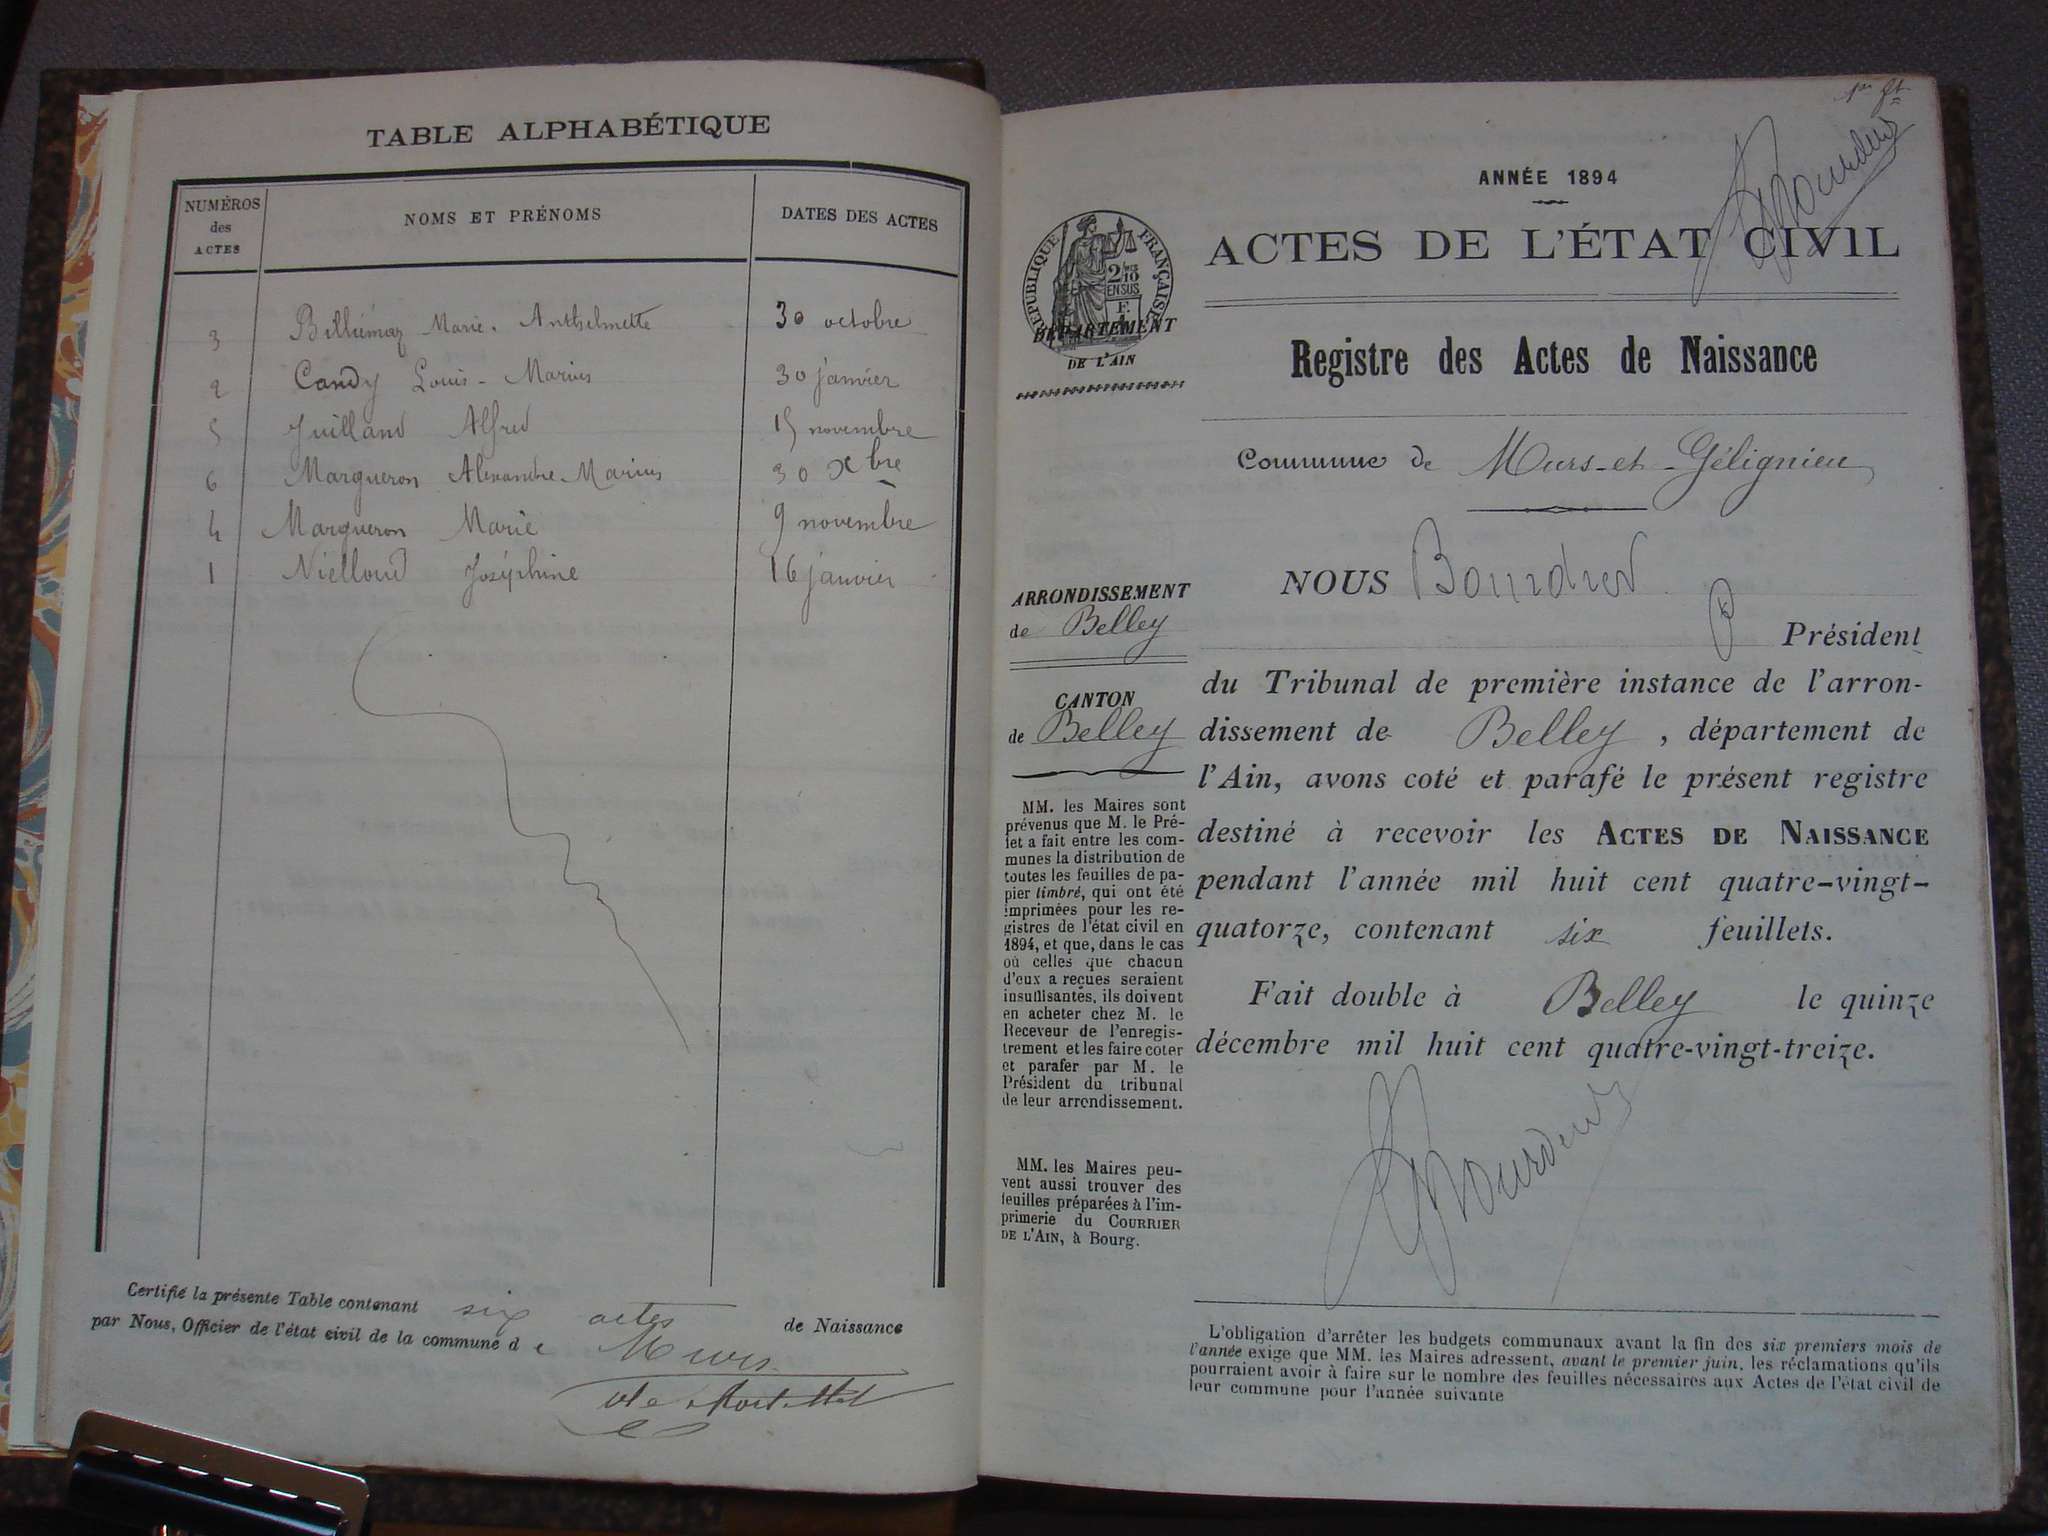 TABLE ALPHABÉTIQUE
NUMÉROS des ACTES
NOMS ET PRÉNOMS
DATES DES ACTES
3 Billiémaz Marie-Anthelmette 30 octobre
2 Candy Louis-Marius 30 janvier
5 Juilland Alfred 15 novembre
6 Margueron Alexandre-Marius 30 Xbre
4 Margueron Marie 9 novembre
1 Niélloud Joséphine 16 janvier
Certifié la présente Table contenant six actes de Naissance
par Nous, Officier de l'état civil de la commune de Murs
ANNÉE 1894
ACTES DE L'ÉTAT CIVIL
RÉPUBLIQUE FRANÇAISE
2/10
EN SUS
DÉPARTEMENT
DE L'AIN
Registre des Actes de Naissance
Commune de Murs-et-Gélignieu
ARRONDISSEMENT
de Belley
CANTON
de Belley
MM. les Maires sont
prévenus que M. le Pré-
fet a fait entre les com-
munes la distribution de
toutes les feuilles de pa-
pier timbré, qui ont été
imprimées pour les re-
gistres de l'état civil en
1894, et que, dans le cas
où celles que chacun
d'eux a reçues seraient
insuffisantes, ils doivent
en acheter chez M. le
Receveur de l'enregis-
trement et les faire coter
et parafer par M. le
Président du tribunal
de leur arrondissement.
MM. les Maires peu-
vent aussi trouver des
feuilles préparées à l'im-
primerie du COURRIER
DE L'AIN, à Bourg.
NOUS
Président
du Tribunal de première instance de l'arron-
dissement de Belley, département de
l'Ain, avons coté et parafé le présent registre
destiné à recevoir les ACTES DE NAISSANCE
pendant l'année mil huit cent quatre-vingt-
quatorze, contenant six feuillets.
Fait double à Belley le quinze
décembre mil huit cent quatre-vingt-treize.
L'obligation d'arrêter les budgets communaux avant la fin des six premiers mois de
l'année exige que MM. les Maires adressent, avant le premier juin, les réclamations qu'ils
pourraient avoir à faire sur le nombre des feuilles nécessaires aux Actes de l'état civil de
leur commune pour l'année suivante